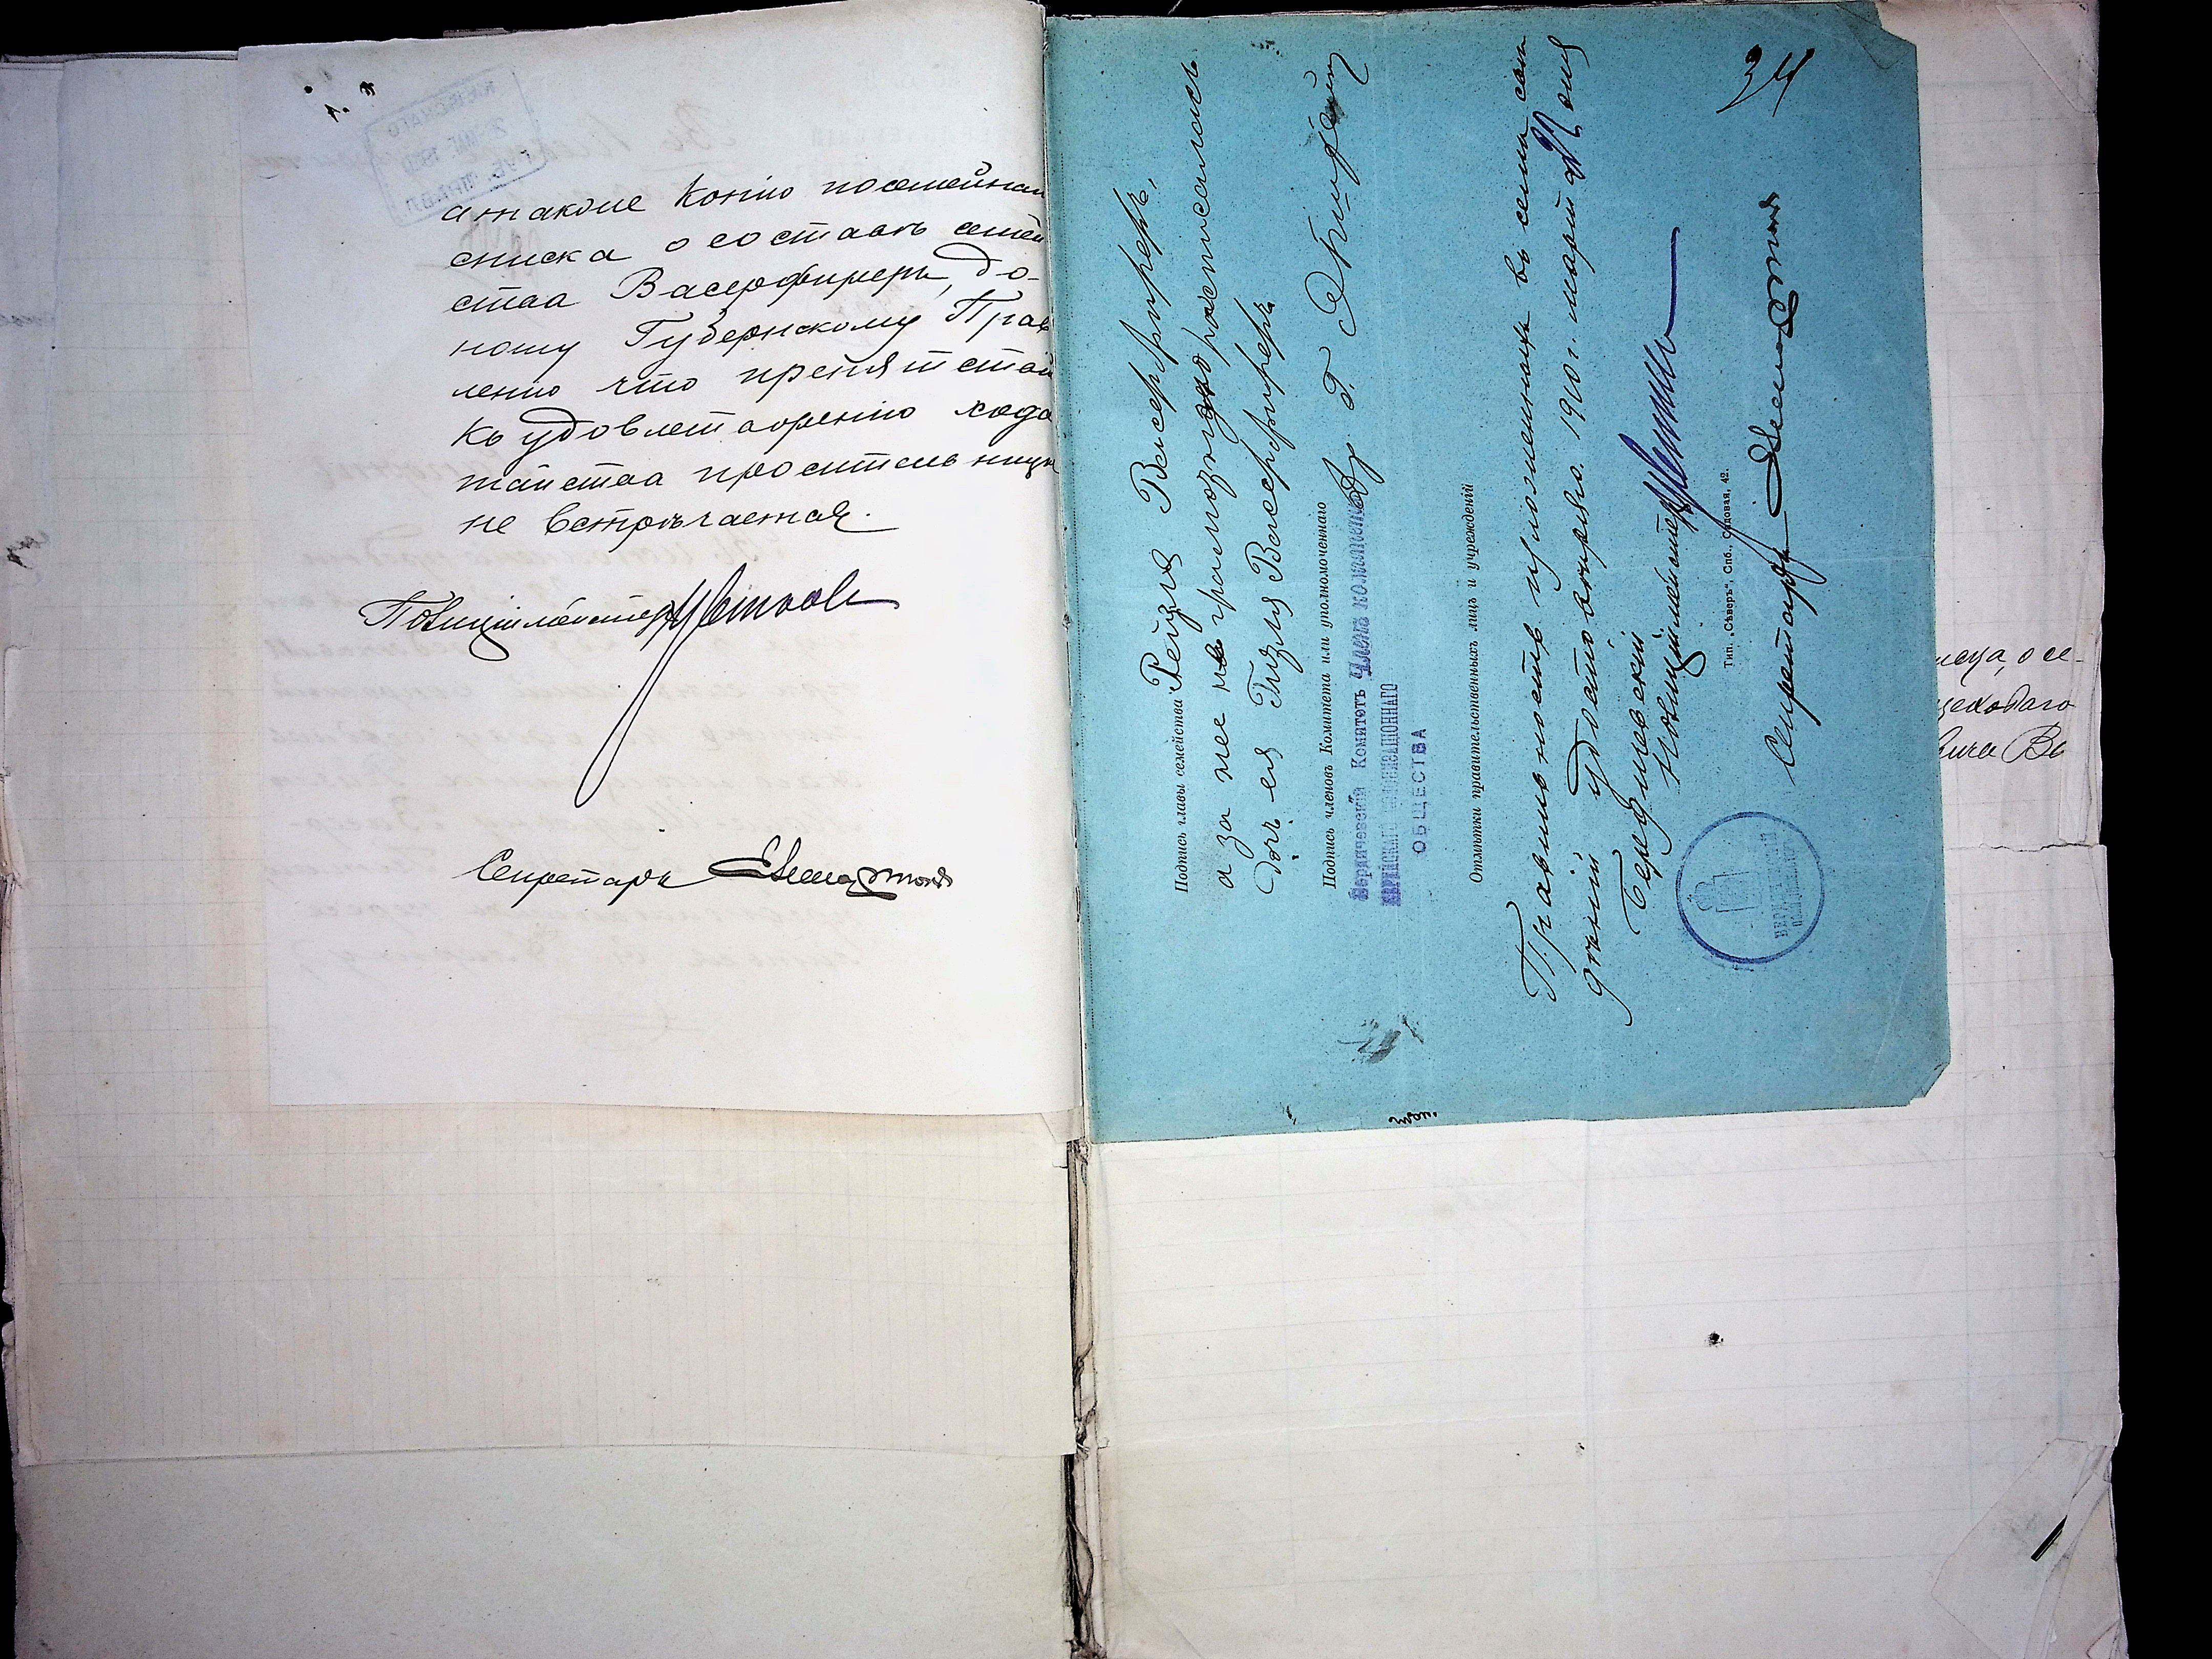 а также копію посемейнаго
списка о составѣ семей
ства Васерфиреръ, до-
ношу Губернскому Прав
ленію что препятствій
къ удовлетворенію хода
тайства просительницы
не встрѣчается.
Полиціймейстеръ
Секретарь
Подпись главы семейства Рейзя Васерфиреръ,
а за нее неграмотную росписалась
дочь ея Гизля Васерфиреръ
Подпись членовъ Комитета или уполномоченнаго
Бердичевскій Комитетъ Члены комитета Др. Г.
ЕВРЕЙСКАГО КОЛОНИЗАЦІОННАГО
ОБЩЕСТВА
Отмѣтки правительственныхъ лицъ и учрежденій
Правильность изложенныхъ въ семъ свѣ
дѣній удостовѣряю. 1910 г. марта дня
Бердичевскій
Полиціймейстеръ
Тип. „Сѣверъ“, Спб., Садовая, 42.
Секретарь
34
исца, о се-
цеховаго
вича Вь